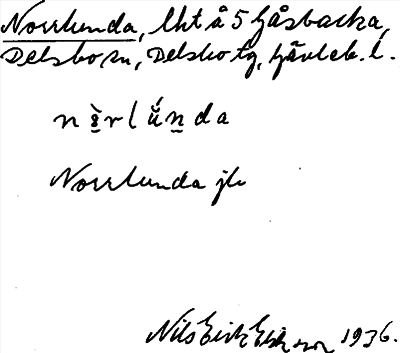 Norrlunda, lht å 5 Gåsbacka,
Delsbo sn, Delsbo tg, Gävleb. l.
Norrlunda jb
Nils Erik Eriksson 1936.